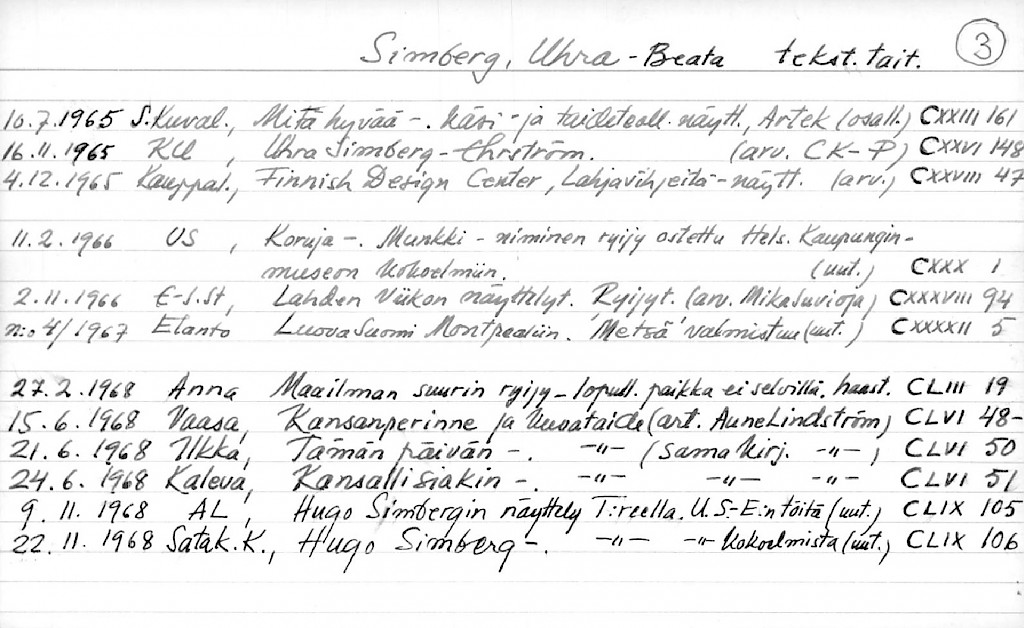 Simberg, Uhra - Beata tekst. tait. 3
10.7.1965 S.Kuval., Mitä hyvää -. käsi- ja taideteoll. näytt., Artek (osall.) CXXIII 161
16.11.1965 KU , Uhra Simberg-Ehrström. (arv. CK-P) CXXVI 148
4.12.1965 Kauppal., Finnish Design Center, Lahjavihjeitä-näytt. (arv.) CXXVIII 47
11.2.1966 US , Koruja -. Munkki-niminen ryijy ostettu Hels. Kaupungin-
museon kokoelmiin. (uut.) CXXX 1
2.11.1966 E-S.St, Lahden Viikon näyttelyt. Ryijyt. (arv. Mika Suvioja) CXXXVIII 94
n:o 4/1967 Elanto Luova Suomi Montrealiin. 'Metsä' valmistuu (uut.) CXXXXII 5
27.2.1968 Anna Maailman suurin ryijy - lopull. paikka ei selvillä, haast. CLIII 19
15.6.1968 Vaasa, Kansanperinne ja kuvataide (art. Aune Lindström) CLVI 48-
21.6.1968 Ilkka, Tämän päivän -. -"- (sama kirj. -"-) CLVI 50
24.6.1968 Kaleva, Kansallisiakin -. -"- -"- -"- CLVI 51
9.11.1968 AL , Hugo Simbergin näyttely T:reella. U.S-E:n töitä (uut.) CLIX 105
22.11.1968 Satak.K., Hugo Simberg -. -"- -"- kokoelmista (uut.) CLIX 106